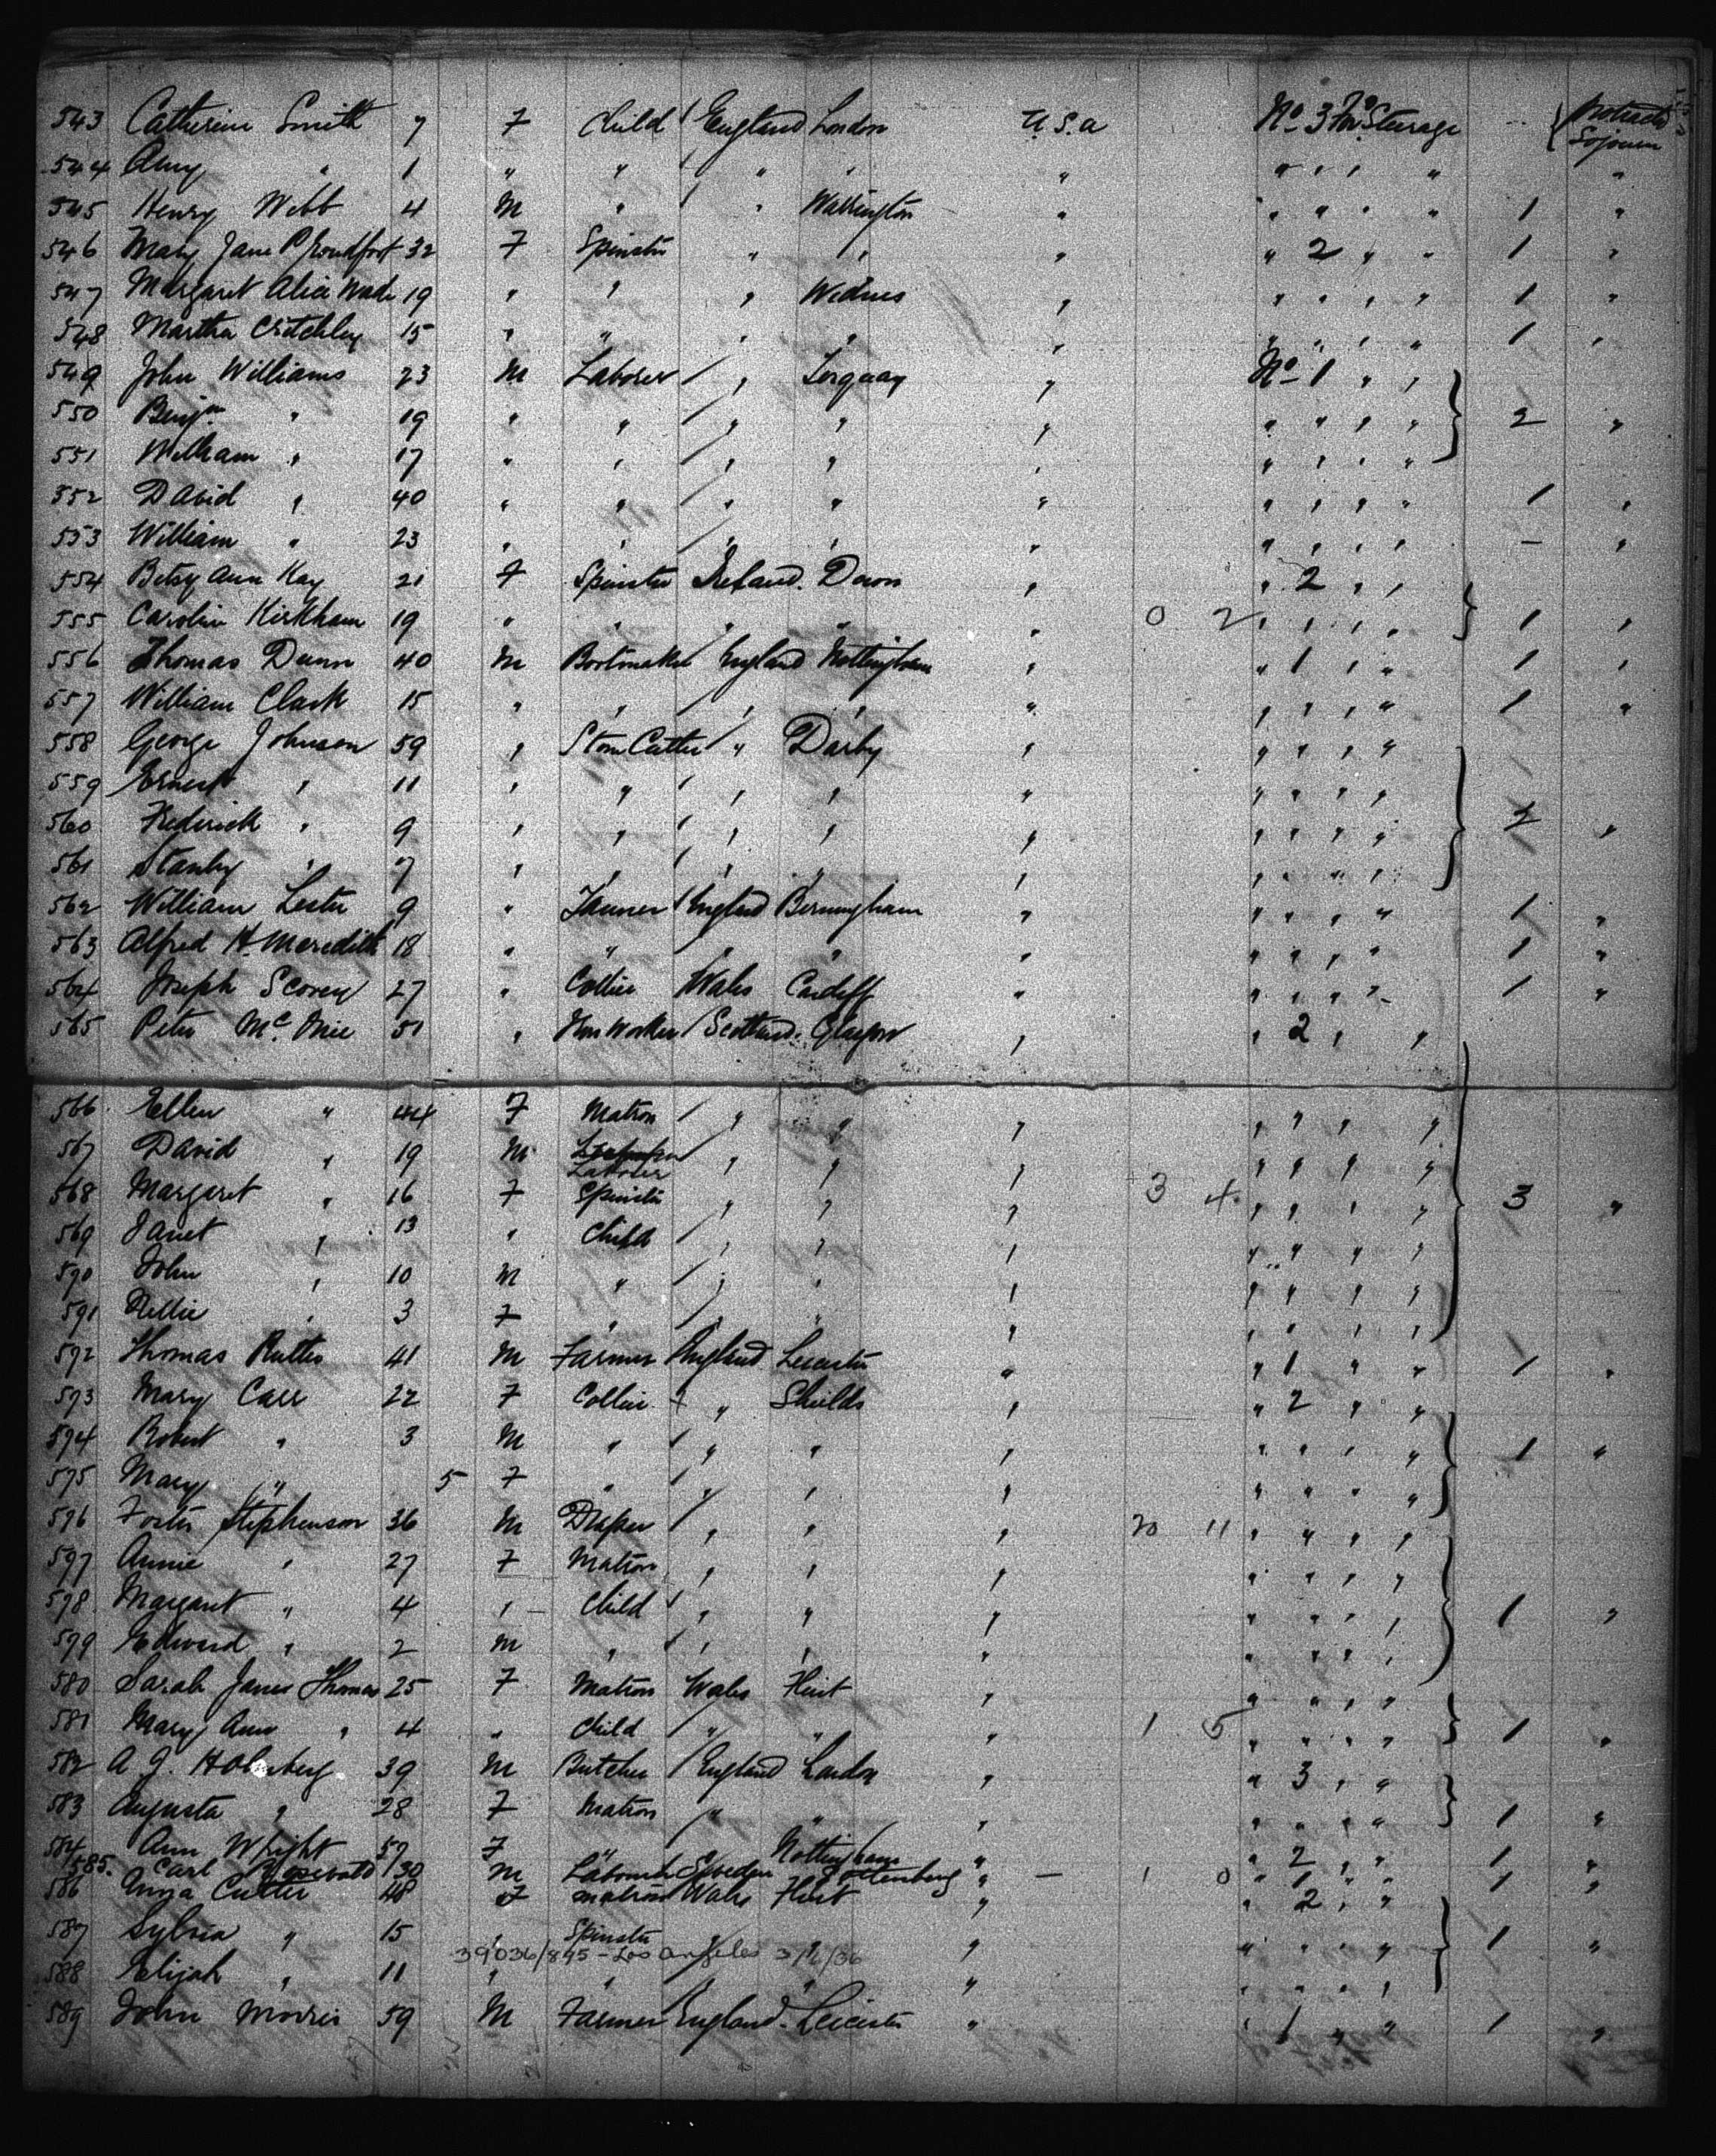 543 Catherine Smith 7 F Child England London U.S.a No 3 For Steerage Protracted Sojourn
544 Amy " 1 " " " " " " " " " "
545 Henry Webb 4 M " " Warrington " " " " " 1 "
546 Mary Jane Proudfoot 32 F Spinster " " " " 2 " " 1 "
547 Margaret Alice Wade 19 " " " Widnes " " " " " 1 "
548 Martha Critchley 15 " " " " " " " " " 1 "
549 John Williams 23 M Laborer " Torquay " No 1 " "
550 Benjn " 19 " " " " " " " " " 2 "
551 William " 17 " " " " " " " " "
552 David " 40 " " " " " " " " " 1 "
553 William " 23 " " " " " " " " " - "
554 Betsy Ann Kay 21 F Spinster Ireland. Down " " 2 " "
555 Carolin Kirkham 19 " " " " " 0 2 " " " " 1 "
556 Thomas Dunn 40 M Bootmaker England Nottingham " " 1 " " 1 "
557 William Clark 15 " " " " " " " " " 1 "
558 George Johnson 59 " Stone Cutter " Darby " " " " "
559 Ernest " 11 " " " " " " " " "
560 Frederick " 9 " " " " " " " " " 2 "
561 Stanley " 7 " " " " " " " " "
562 William Lester 9 " Farmer England Bermingham " " " " " 1 "
563 Alfred H. Meredith 18 " " " " " " " " " 1 "
564 Joseph Scovey 27 " Collier Wales Cardiff " " " " " 1 "
565 Peter 51 " Iron Worker Scotland. Glasgow " " 2 " "
566 Ellen " 44 F Matron " " " " " " "
567 David " 19 M Laborer " " " " " " "
568 Margaret " 16 F Spinster " " " 3 4 " " " " 3 "
569 Janet " 13 " Child " " " " " " "
590 John " 10 M " " " " " " " "
591 Nellie " 3 F " " " " " " " "
592 Thomas Rutter 41 M Farmer England Leicester " " 1 " " 1 "
593 Mary Carr 22 F Collier " Shields " " 2 " "
594 Robert " 3 M " " " " " " " " 1 "
595 Mary " 5 F " " " " " " " "
596 Foster Stephenson 36 M Draper " " " 20 11 " " " "
597 Annie " 27 F Matron " " " " " " "
598 Margaret " 4 " Child " " " " " " " 1 "
599 Edward " 2 M " " " " " " " "
580 Sarah Jane Thomas 25 F Matron Wales Flint " " " " "
581 Mary Ann " 4 " Child " " " 1 5 " " " " 1 "
582 A J. Holmberg 39 M Butcher England London " " 3 " "
583 Augusta " 28 F Matron " " " " " " " 1 "
584 Ann Wright 57 F " " Nottingham " " 2 " " 1 "
585. Carl 30 M Labourer Sweden Gottenberg " - 1 0 " 1 " " 1 "
586 Anna Cutter 48 F Matron Wales Flint " " 2 " "
587 Sylvia " 15 " Spinster " " " " " " " 1 "
39036/845 - Los Angeles 3/6/36
588 Elijah " 11 " " " " " " " " "
589 John Morris 59 M Farmer England. Leicester " " 1 " " 1 "